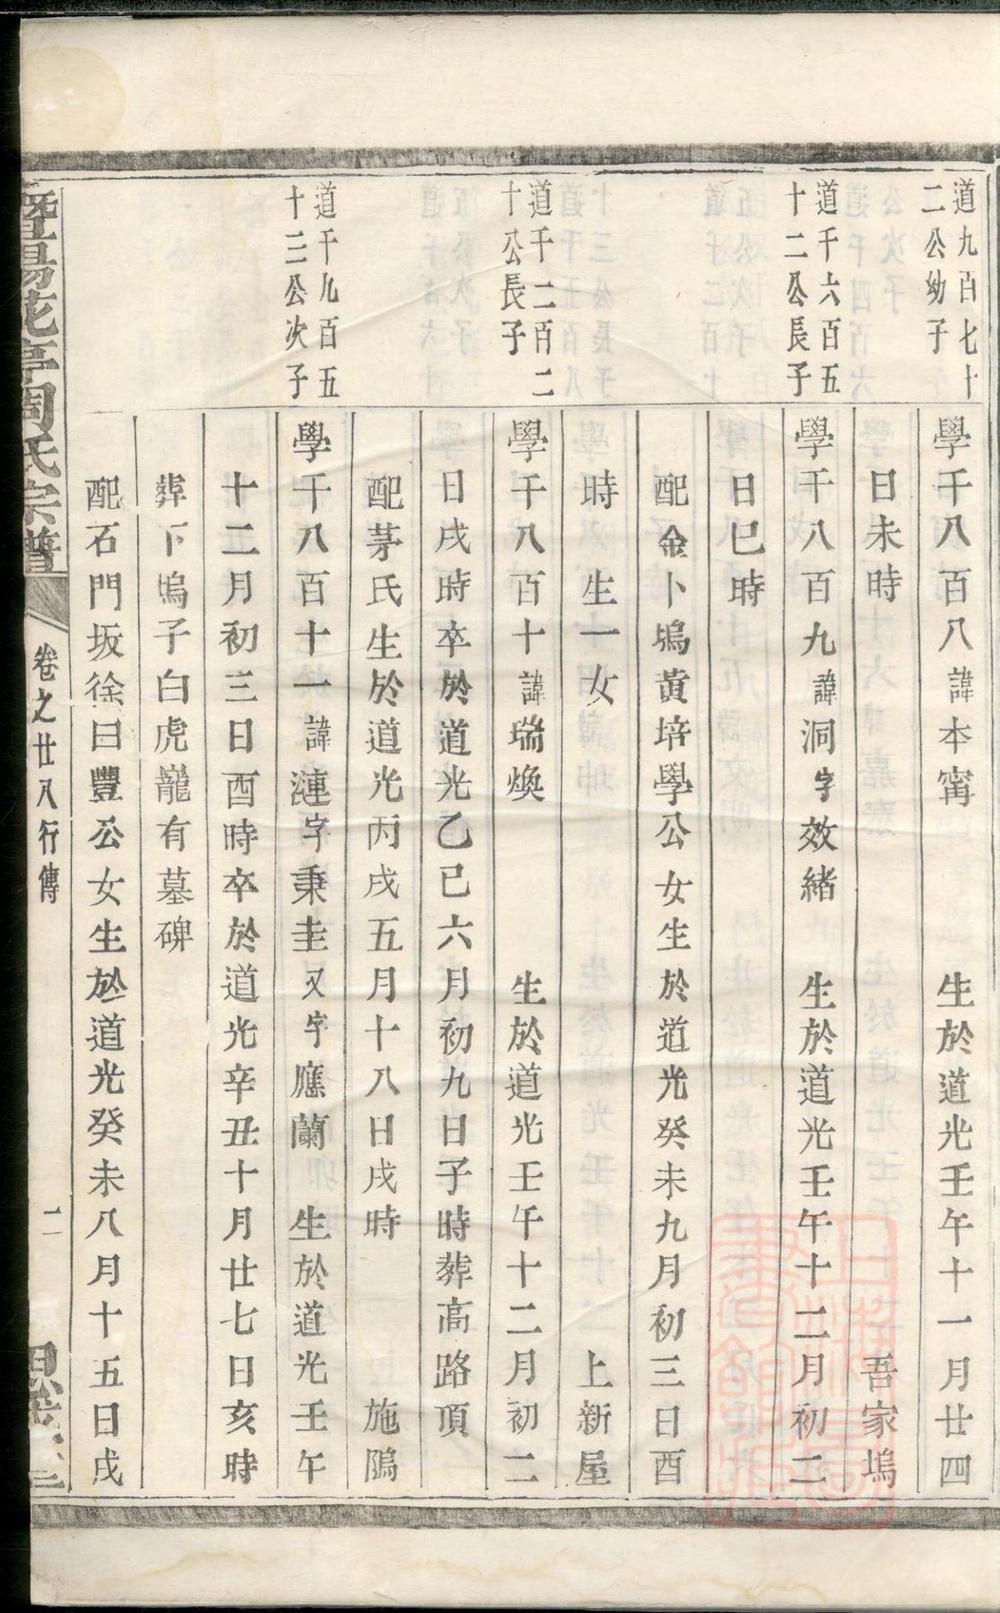 道九百七十
二公幼子
學千八百八諱本甯 生於道光壬午十一月廿四
日未時 吾家塢
道千六百五
十二公長子
學千八百九諱洞字效緒 生於道光壬午十二月初二
日巳時
配金卜塢黃培學公女生於道光癸未九月初三日酉
時 生一女 上新屋
道千二百二
十公長子
學千八百十諱瑞煥 生於道光壬午十二月初二
日戌時卒於道光乙巳六月初九日子時葬高路頂
配茅氏生於道光丙戌五月十八日戌時 施隖
道千九百五
十三公次子
學千八百十一諱漣字秉圭又字應蘭 生於道光壬午
十二月初三日酉時卒於道光辛丑十月廿七日亥時
葬下塢子白虎巃有墓碑
配石門坂徐曰豐公女生於道光癸未八月十五日戌
暨陽花亭周氏宗譜
卷之廿八行傳
二